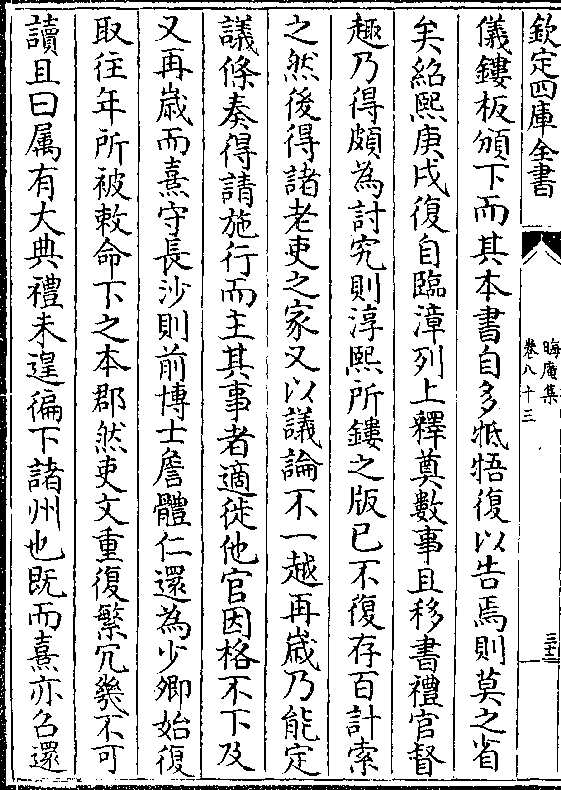 欽定四庫全書
晦庵集
卷八十三
三十三
儀鏤板頒下而其本書自多牴牾復以告焉則莫之省
矣紹熙庚戌復自臨漳列上釋奠數事且移書禮官督
趣乃得頗為討究則淳熙所鏤之版已不復存百計索
之然後得諸老吏之家又以議論不一越再嵗乃能定
議條奏得請施行而主其事者適徙他官因格不下及
又再嵗而熹守長沙則前博士詹體仁還為少卿始復
取往年所被敕命下之本郡然吏文重復繁冗㡬不可
讀且曰属有大典禮未遑徧下諸州也既而熹亦召還